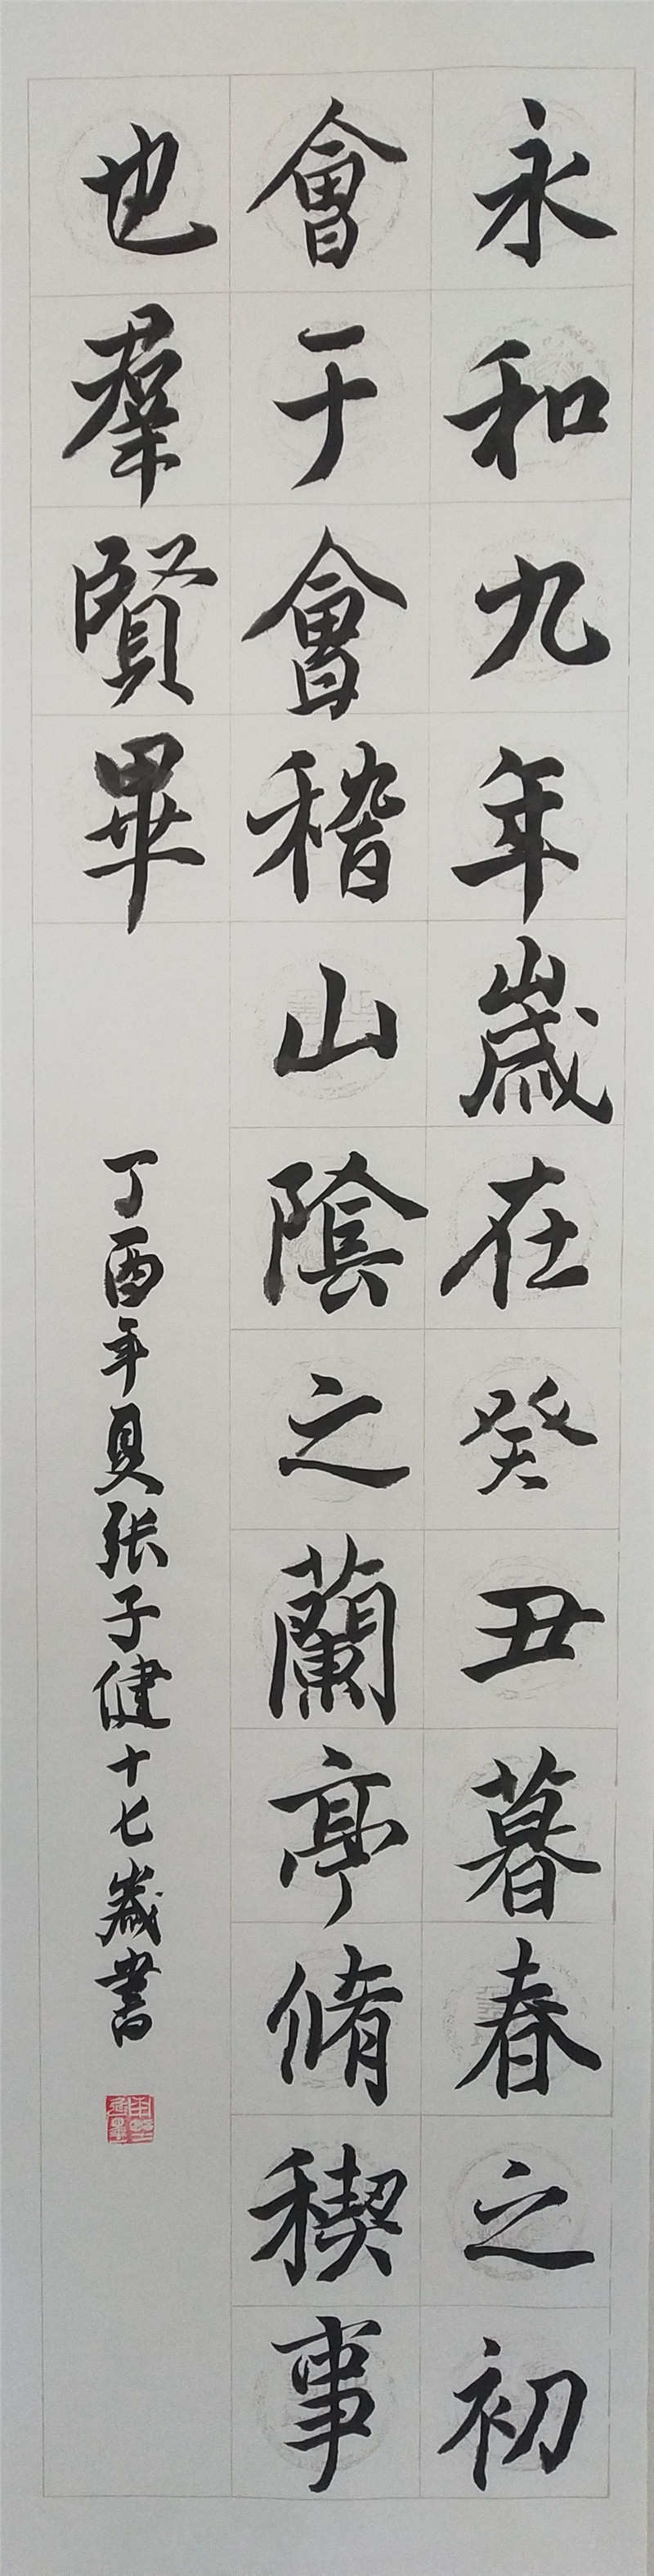 永和九年歲在癸丑暮春之初
會于會稽山陰之蘭亭脩稧事
也羣賢畢
丁酉年夏張子健十七歲書